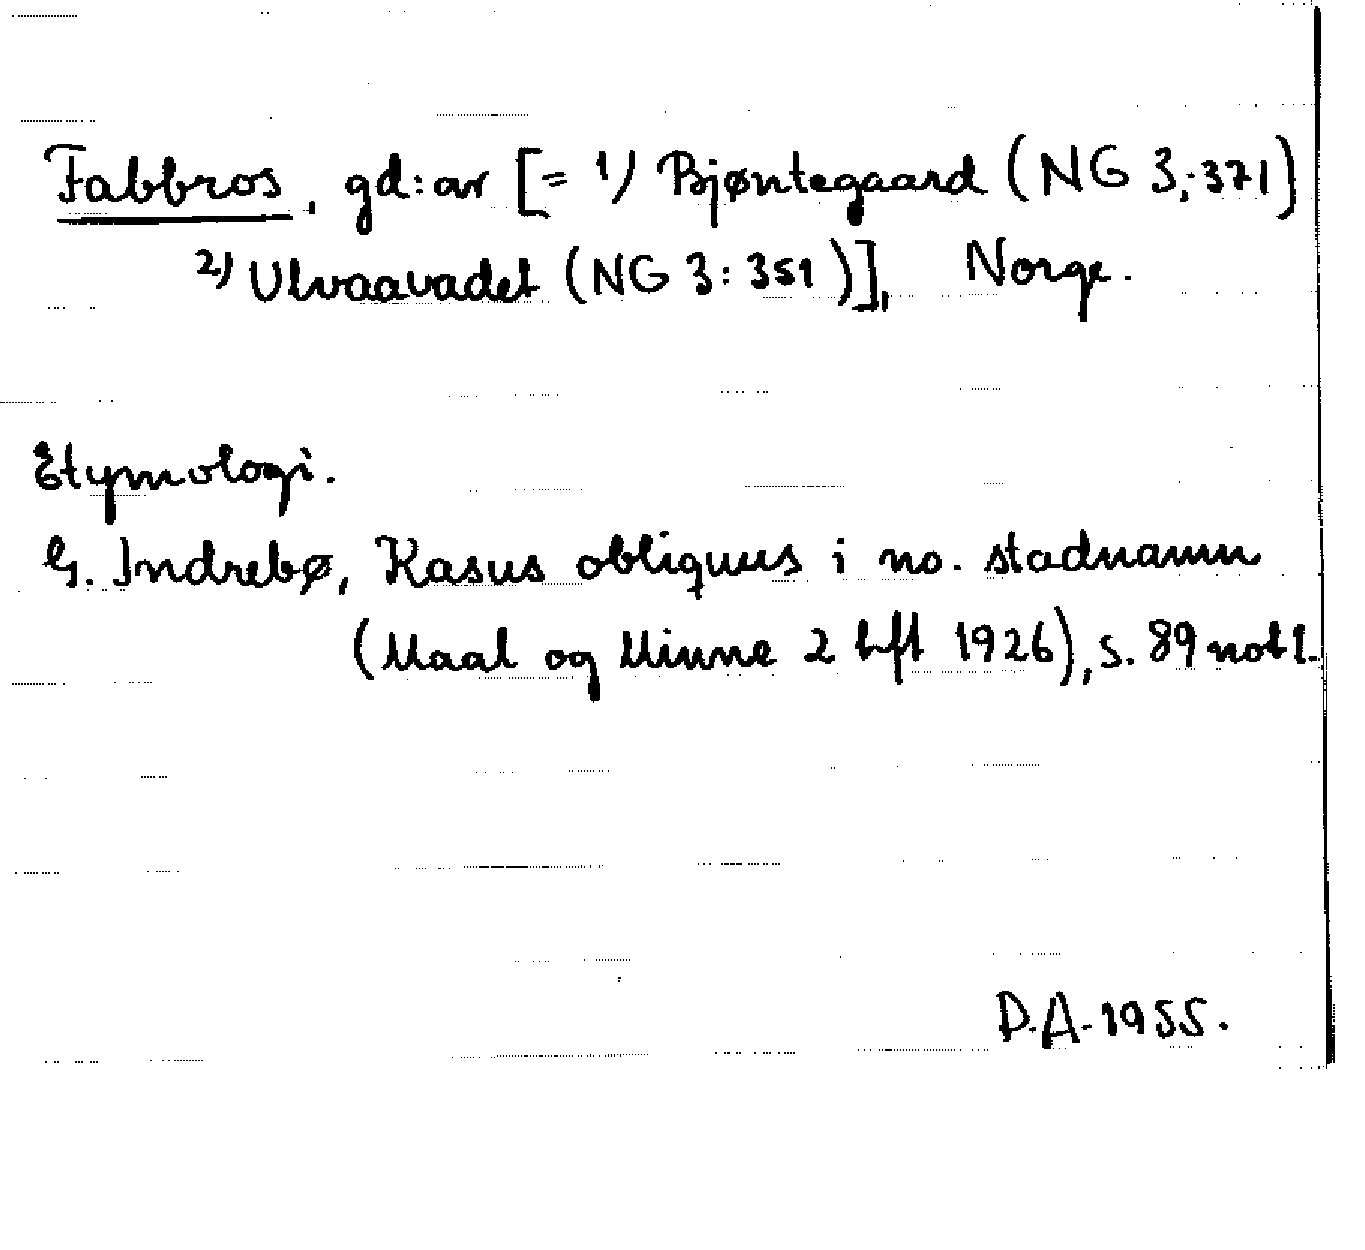 Fabbros, gd:ar [= 1) Bjøntegaard (NG 3,371)
2) Ulvaavadet (NG 3:351)], Norge.
Etymologi.
G. Indrebø, Kasus obliquus i no. stadnamn
(Maal og Minne 2 hft 1926), s. 89 not 1.
D.A. 1955.